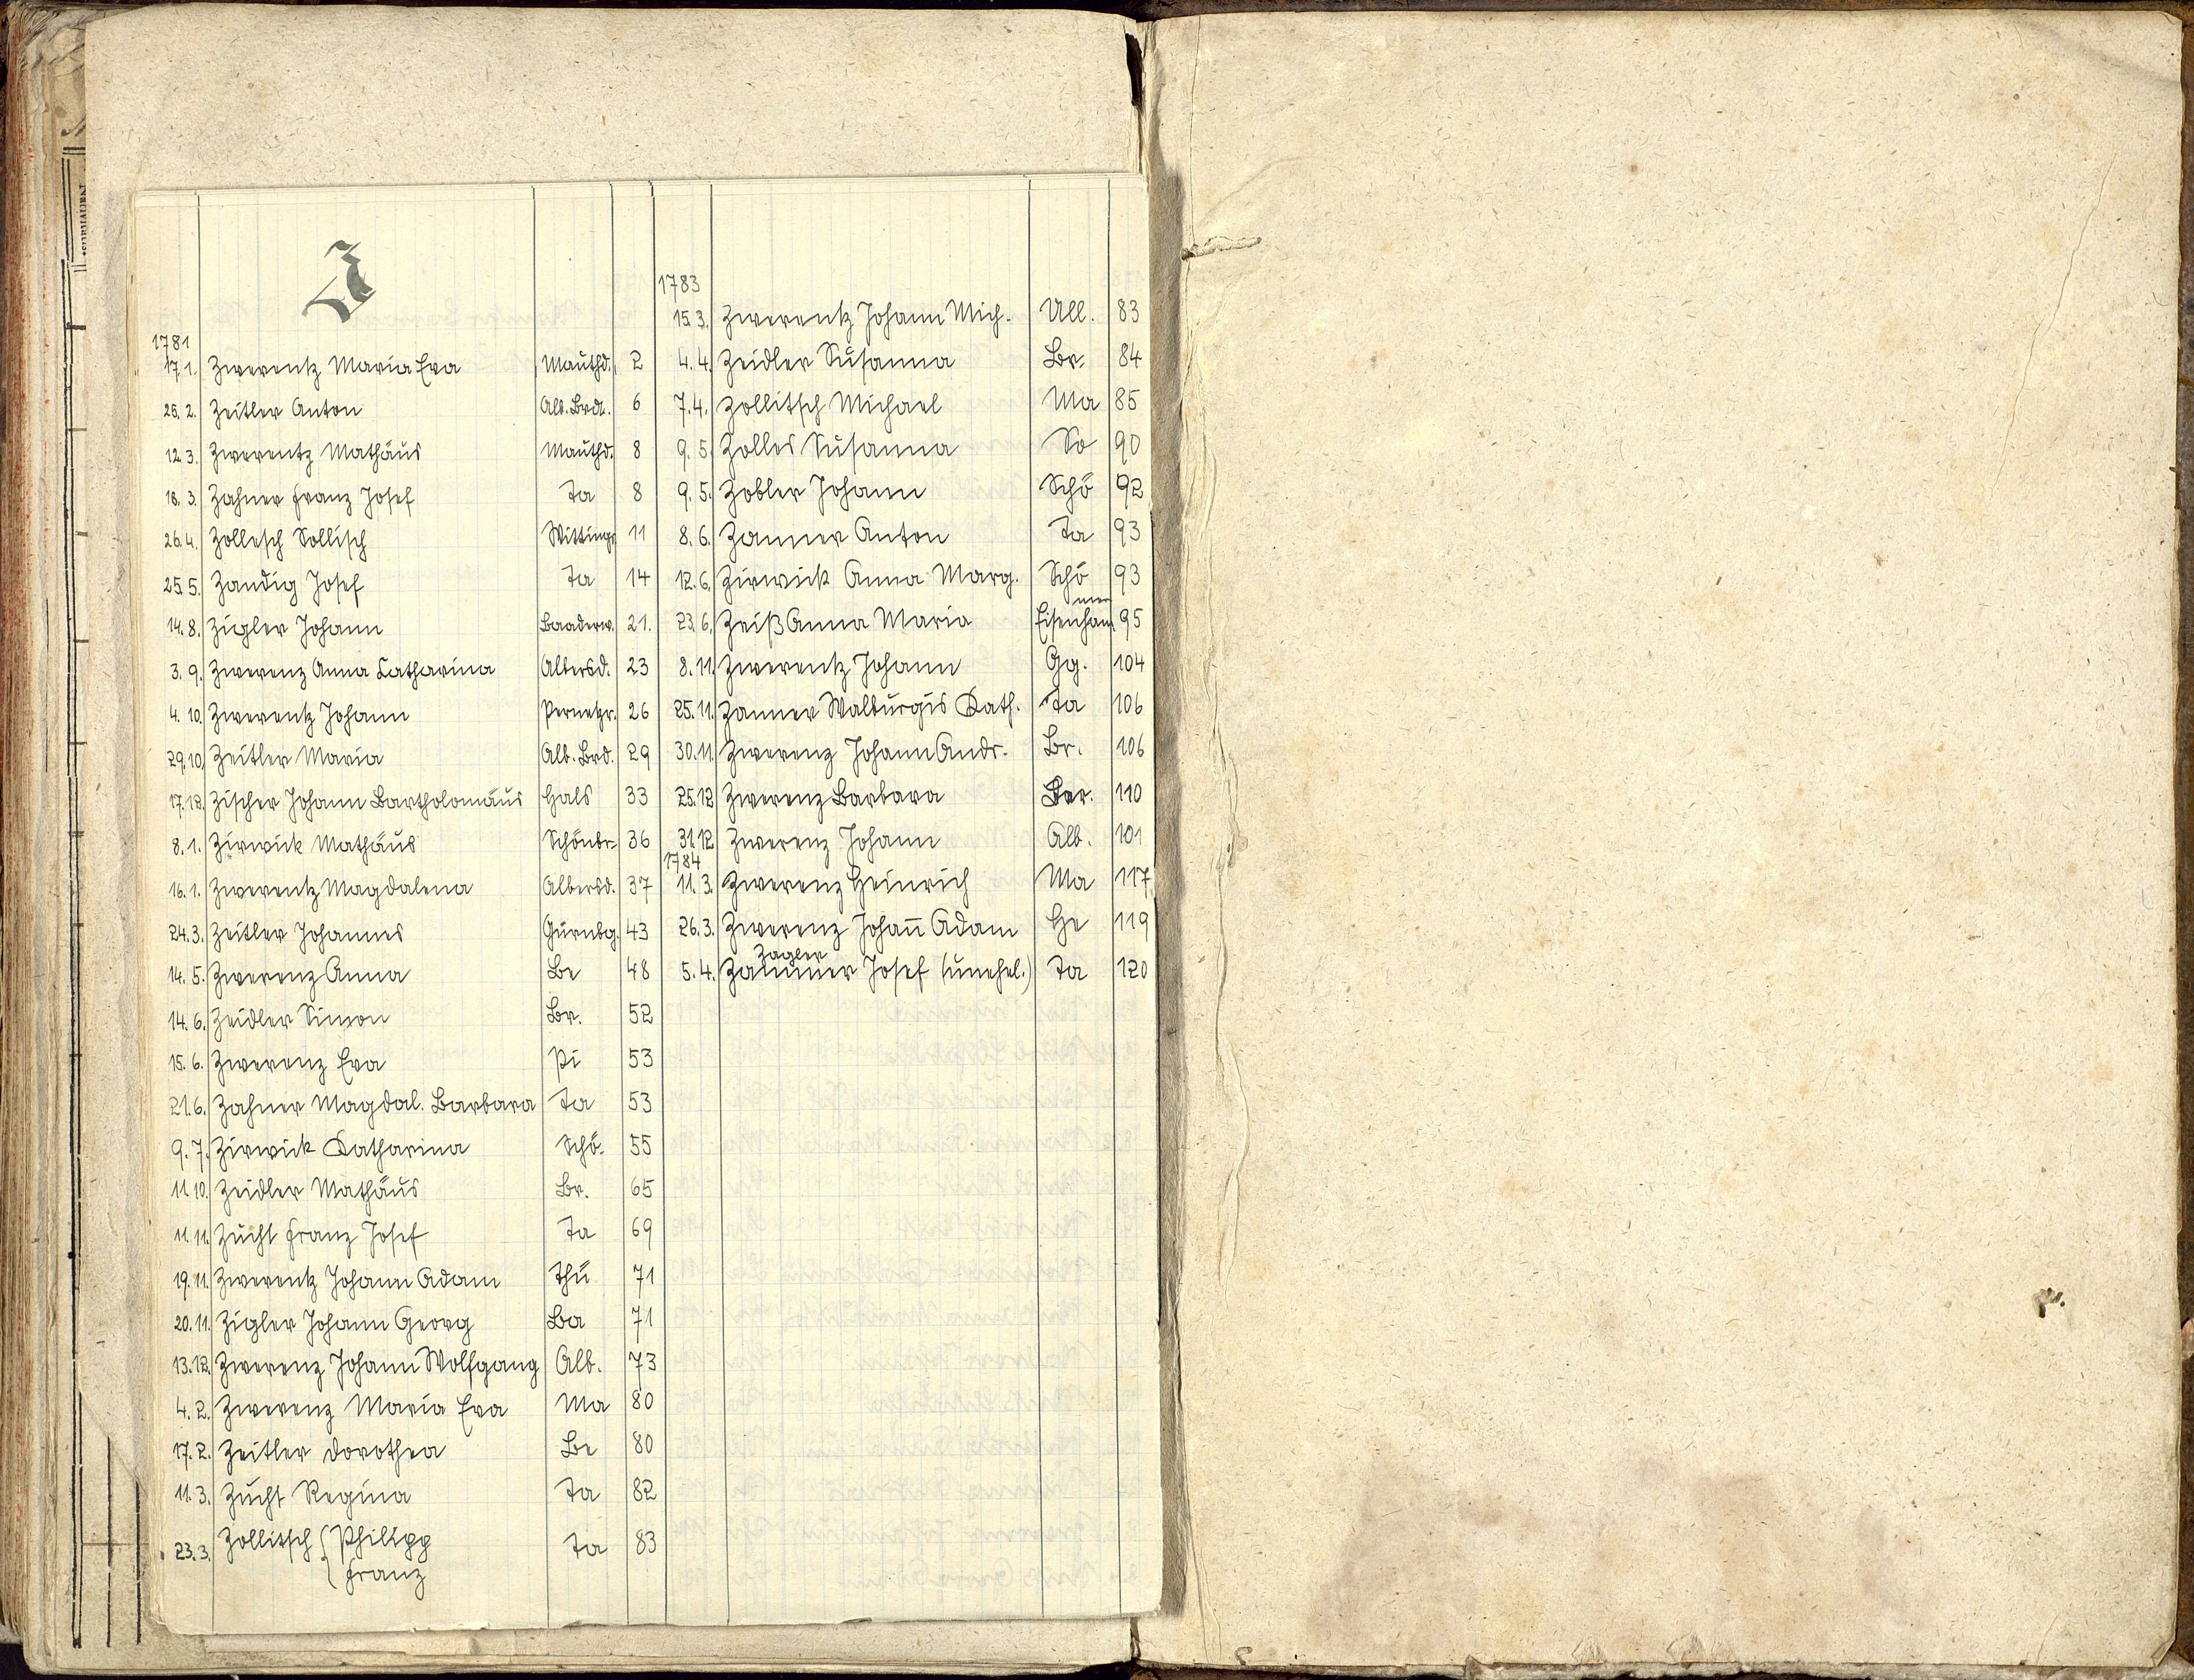 Z
1781
17.1. Zwerentz Maria Eva Mauthd. 2
25.2. Zeitler Anton Alb. Brdt. 6
12.3. Zwerentz Mathäus Mauthd. 8
18.3. Zahner Franz Josef Ta 8
26.4. Zollesch Sollisch Wittingr. 11
25.5. Zandig Josef Ta 14
14.8. Zigler Johann Baaderw. 21.
3.9. Zwerenz Anna Catharina Albersd. 23
4.10. Zwerentz Johann Pernetgr. 26
29.10. Zeitler Maria Alb. Brd. 29
17.12. Zischer Johann Bartholomäus Hals 33
8.1. Zirwick Mathäus Schönbr. 36
16.1. Zwerentz Magdalena Albersd. 37
24.3. Zeitler Johannes Gürnbg. 43
14.5. Zwerenz Anna Be 48
14.6. Zeidler Simon Br. 52
15.6. Zwerenz Eva Pi 53
21.6. Zahner Magdal. Barbara Ta 53
9.7. Zirwick Katharina Schö. 55
11.10. Zeidler Mathäus Br. 65
11.11. Zücht Franz Josef Ta 69
19.11. Zwerentz Johann Adam Thü 71
20.11. Zigler Johann Georg Ba 71
13.12. Zwerenz Johann Wolfgang Alb. 73
4.2. Zwerenz Maria Eva Ma 80
17.2. Zeitler Dorothea Be 80
11.3. Zücht Regina Ta 82
23.3. Zollitsch { Philipp Ta 83
Franz
1783
15.3. Zwerentz Johann Mich. Ull. 83
4.4. Zeidler Susanna Br. 84
7.4. Zollitsch Michael Ma 85
9.5. Zolles Susanna So 90
9.5. Zobler Johann Schö 92
8.6. Zanner Anton Ta 93
12.6. Zirwick Anna Marg. Schö 93
23.6. Zeiß Anna Maria Eisenham mer 95
8.11. Zwerentz Johann Gg. 104
25.11. Zanner Walburgis Kath. Ta 106
30.11. Zwerenz Johann Andr. Br. 106
25.12 Zwerenz Barbara Ber. 110
31.12 Zwerenz Johann Alb. 101
1784
11.3. Zwerenz Heinrich Ma 117
26.3. Zwerenz Johan̄ Adam He 119
Zagler
5.4. Zammer Josef (unehel.) Ta 120